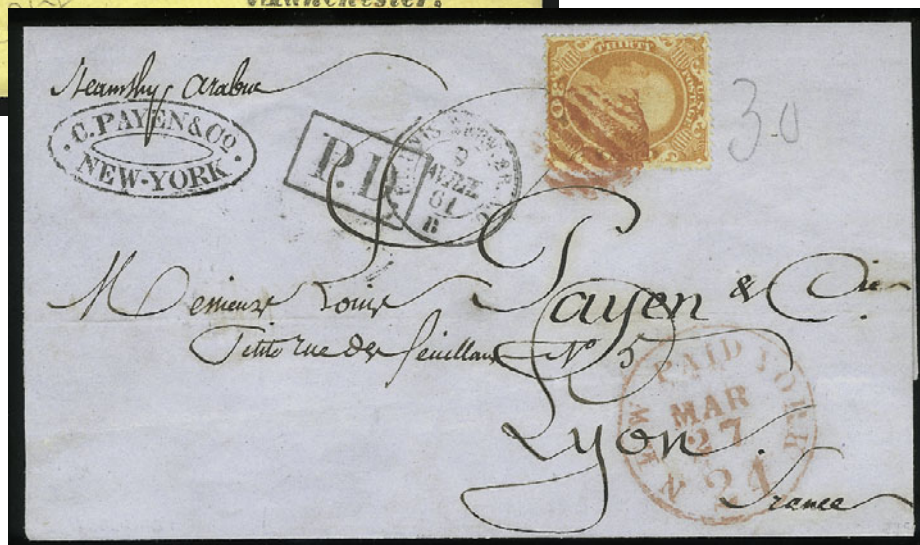 Manchester.
Steamship Arabia
C. PAYEN & CO.
NEW-YORK
P.D.
2
AVRIL
61
B
THIRTY
30
30
Messieurs Louis Payen & Cie
Petite rue des Feuillans No 5
Lyon.
France
NEW PAID YORK
MAR
27
24